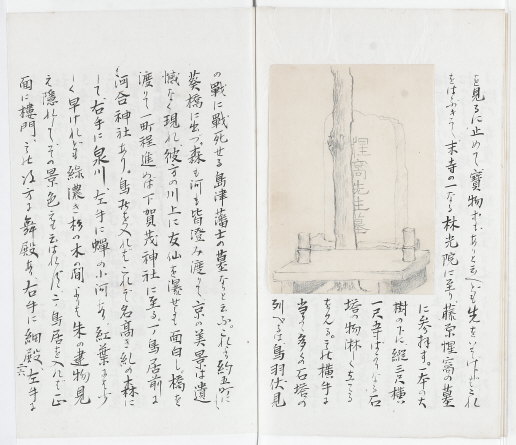 を見るに止めて寶物もありと云へども先をいそげばこれ
をはぶきて、末寺の一なる林光院に至り藤原惺窩の墓
に参拝す。一本の大
樹の下に縦三尺横
一尺幸ばかりなる石
塔の物淋しく立てる
なり。其横手に
当り多くの石塔の
列べるは鳥羽伏見
惺窩先生墓
の戰に戰死せる島津藩士の墓なりと云ふ。これより
葵橋に出づ。森も河も皆澄み渡りて京の美景は遺
憾なく現れ彼方の川上に友仙を瀑せる面白し橋を
渡りて一町程進めば下賀茂神社に至る。一ノ鳥居前に
河合神社あり。鳥居を入ればこれぞ名高き糺の森に
して右手に泉川左手に蟬の小河あり紅葉には少
しく早けれども緑濃き杉の木の間より朱の建物見
え隠れして、その景色云はれず。二ノ鳥居を入れば正
面に樓門、其は彼方に舞殿あり右手に細殿左手に